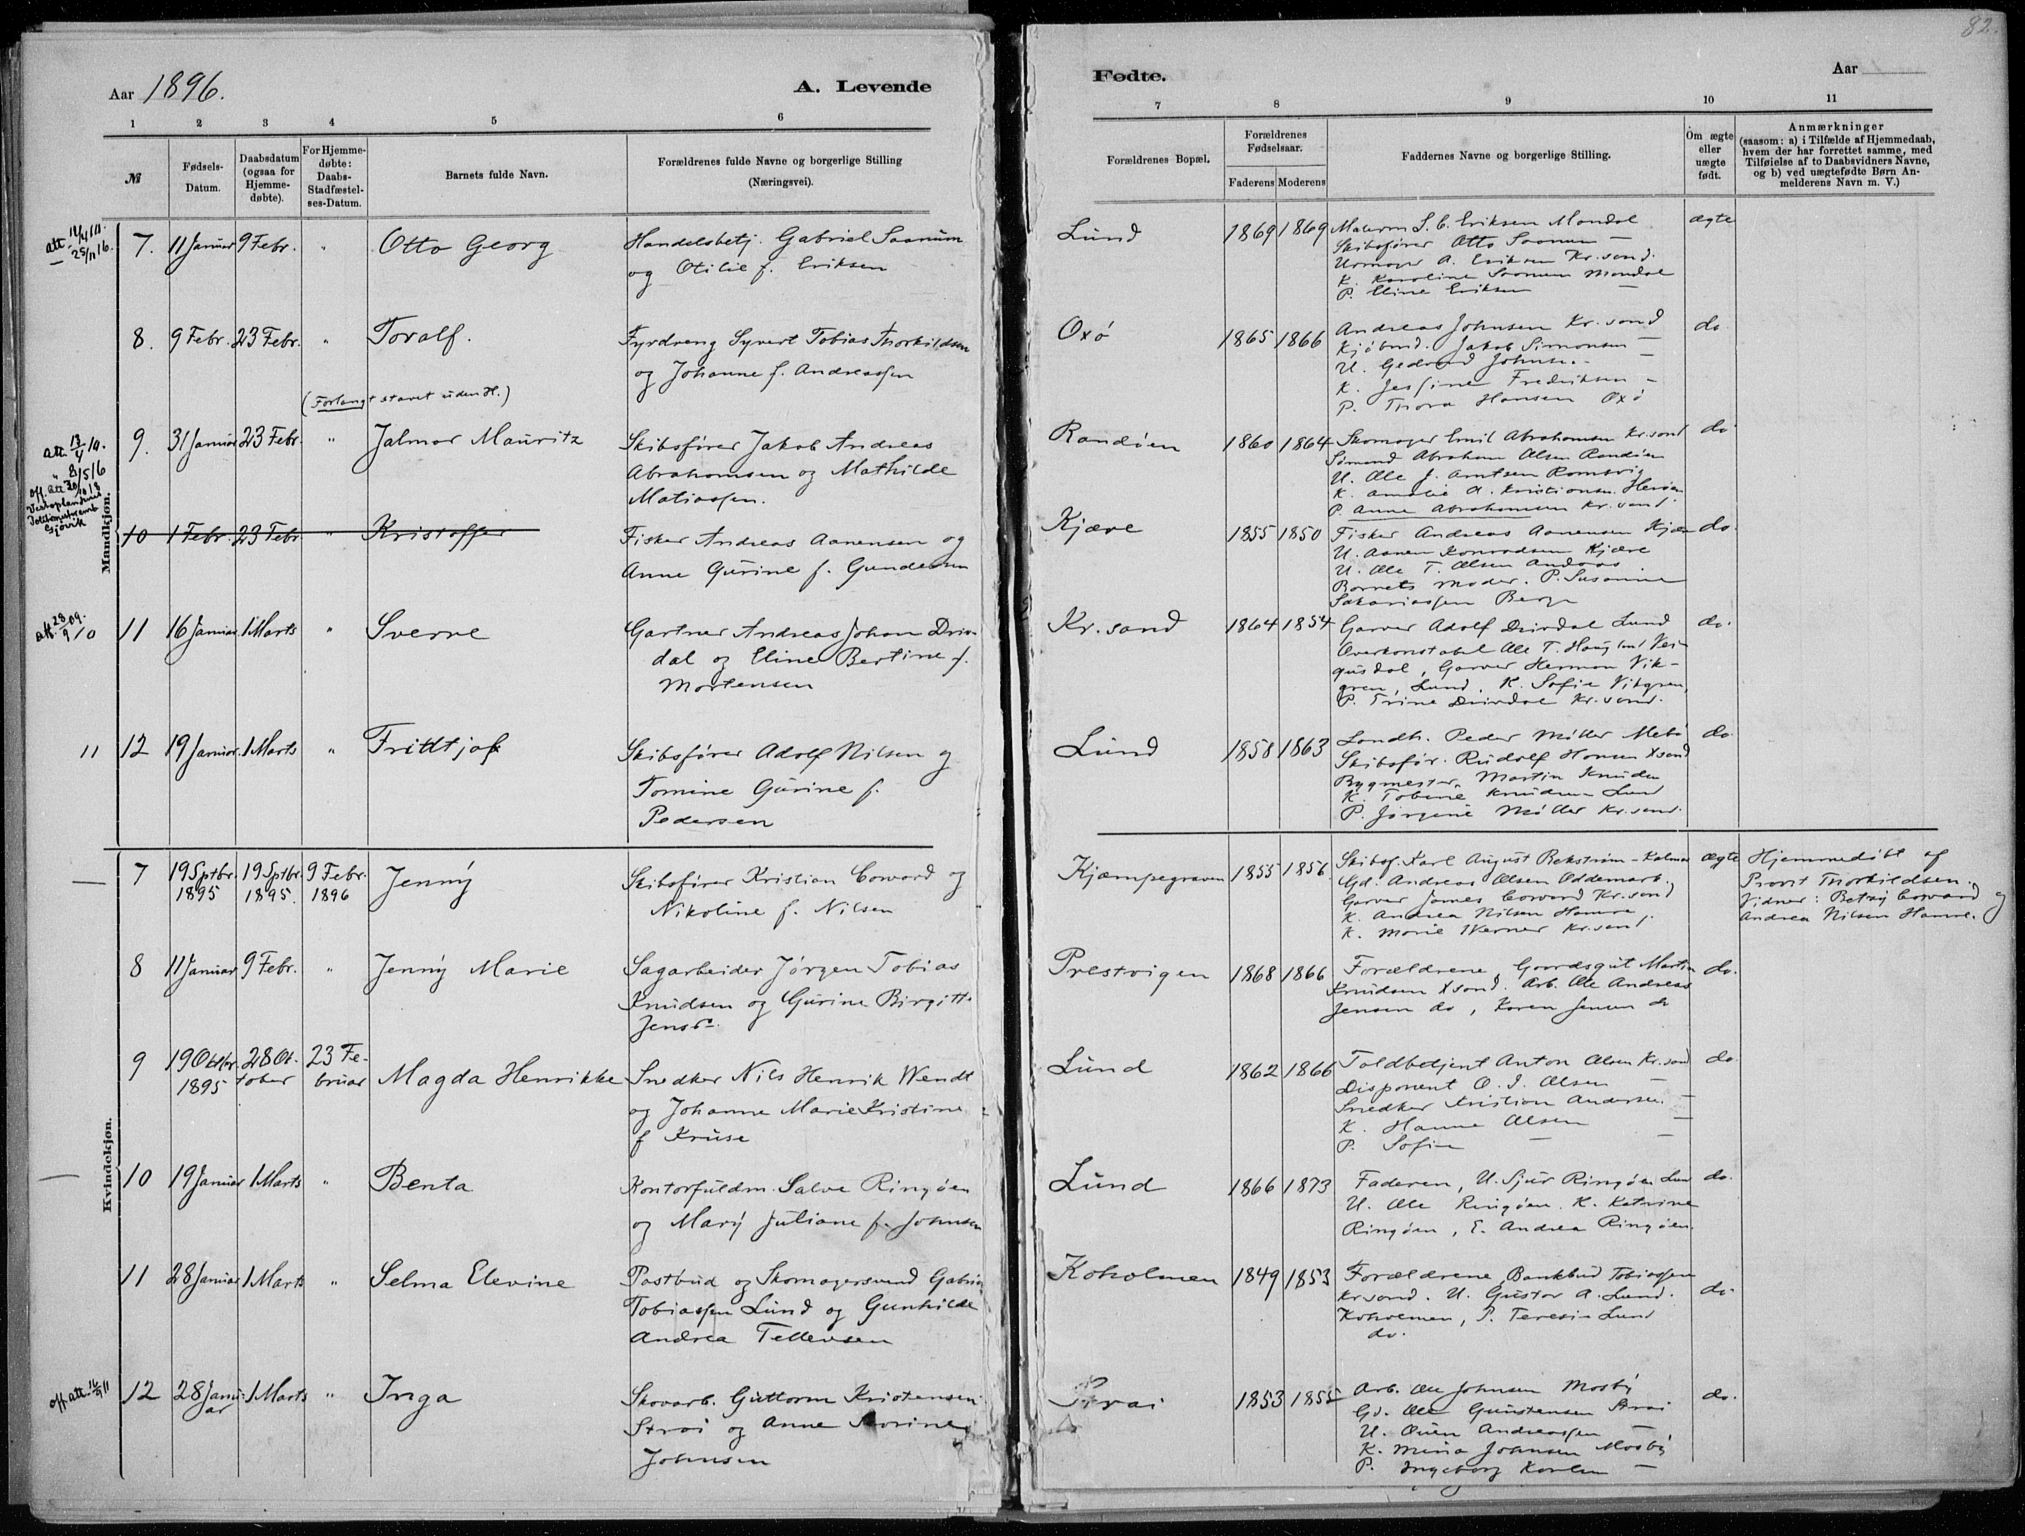 82.
Aar 1896.
A. Levende
Fødte.
Aar
1 2 3 4 5 6
7 8 9 10 11
№
Fødsels-
Datum.
Daabsdatum
(ogsaa for
Hjemme-
døbte).
For Hjemme-
døbte:
Daabs-
Stadfæstel-
ses-Datum.
Barnets fulde Navn.
Forældrenes fulde Navne og borgerlige Stilling
(Næringsvei).
Forældrenes Bopæl.
Forældrenes
Fødselsaar.
Faderens Moderens
Faddernes Navne og borgerlige Stilling.
Om ægte
eller
uægte
født.
Anmærkninger
(saasom: a) i Tilfælde af Hjemmedaab,
hvem der har forrettet samme, med
Tilføielse af to Daabsvidners Navne,
og b) ved uægtefødte Børn An-
melderens Navn m. V.)
Mandkjøn.
7. 11 Januar 9 Febr. " Otto Georg
Handelsbetj. Gabriel Saanum
og Otilie f. Eriksen
Lund 1869 1869
S. C. Eriksen Mandal
Skibsfører Otto Saanum —
Urmager A. Eriksen Kr.sand.
K. Karoline Saanum Mandal
P. Eline Eriksen —
ægte
8. 9 Febr. 23 Febr. " Toralf.
Fyrdreng Syvert Tobias Thorkildsen
og Johanne f. Andreassen
Oxø 1865 1866
Andreas Johnsen Kr.sand
Kjøbmd. Jakob Simonsen —
U. Johnsen —
K. Jessine Fredriksen —
P. Thora Hansen Oxø
do
(Forlangt stavet uden H.)
9. 31 Januar 23 Febr. " Jalmar Mauritz
Skibsfører Jakob Andreas
Abrahamsen og Mathilde
Matiassen.
Randøen 1860 1864
Skomager Emil Abrahamsen Kr.sand
Sømand Abraham Olsen Randøen
U. Ole J. Arntsen Romsvig
K. Amalie A. Kristiansen
P. Anne Abrahamsen Kr.sand.
do
10 1 Febr. 23 Febr. " Kristoffer
Fisker Andreas Aanensen og
Anne Gurine f. Gundersen
Kjære 1855 1850
Fisker Andreas Aanensen Kjære
U. Aanen Konradsen Kjære
U. Ole T. Olsen Andaas.
Barnets Moder. P. Susanne
Sakariassen Berge
do.
att. 28/9 09.
10
11 16 Januar 1 Marts " Sverre
Gartner Andreas Johan Driv-
dal og Eline Bertine f.
Mortensen
Kr.sand 1864 1854
Garver Adolf Drivdal Lund
Overkonstabel Ole T. Haugland Vei-
gusdal, Garver Herman Vik-
gren, Lund. K. Sofie Vikgren,
P. Trine Drivdal Kr.sand.
do.
11
12 19 Januar. 1 Marts " Fridtjof
Skibsfører Adolf Nilsen og
Tomine Gurine f.
Pedersen
Lund 1858 1863
Landh. Peder Møller Mebø
Skibsfør. Rudolf Hansen Xsand
Bygmester Martin Knudsen
K. Tobine Knudsen Lund
P. Jørgine Møller Kr.sand.
do
Kvindekjøn.
7 19 Sptbr. 1895 19 Sptbr. 1895. 9 Febr. 1896 Jenny
Skibsfører Kristian Coward og
Nikoline f. Nilsen
Kjæmpegraven 1855 1856
Skibsf. Karl August Bekstrøm – Kalmar
Gd. Andreas Olsen Oddemark.
Garver James Coward Kr.sand
K. Andrea Nilsen Hamre,
K. Marie Werner Kr.sand
ægte
Hjemmedøbt af
Provst Thorkildsen.
Vidner: Betsy Coward og
Andrea Nilsen Hamre.
8 11 Januar 9 Febr. " Jenny Marie
Sagarbeider Jørgen Tobias
Knudsen og Gurine Birgitte
Jensen
Prestvigen 1868 1866
Forældrene, Gaardsgut Martin
Knudsen Xsand. Arb. Ole Andreas
Jensen do, Karen Jensen do
do.
9 19 Oktbr 1895 28 Ok- tober 23 Fe- bruar Magda Henrikke
Snedker Nils Henrik Wendt
og Johanne Marie Kristine
f Kruse
Lund 1862 1866
Toldbetjent Anton Olsen Kr.sand
Disponent O. J. Olsen —
Snedker Kristian Andersen —
K. Hanna Olsen —
P. Sofie — —
do.
10 19 Januar 1 Marts " Benta
Kontorfuldm. Salve Ringøen
og Mary Juliane f. Johnsen
Lund 1866 1873
Faderen, U. Sjur Ringøen Lund
U. Ole Ringøen. K. Katrine
Ringøen, E. Andrea Ringøen.
do.
11 28 Januar 1 Marts " Selma Elevine
Postbud og Skomagersvend Gabriel
Tobiassen Lund og Gunhilde
Andrea Tellevsen
Koholmen 1849 1853
Forældrene, Bankbud Tobiassen
Kr.sand. U. Gustav A. Lund.
Koholmen, P. Teresie Lund
do.
do.
off. att. 16/9 11
12 28 Janu- ar 1 Marts " Inga
Skovarb. Guttorm Kristensen
Strai og Anne Severine
Johnsen
Strai 1853 1855
Arb. Ole Johnsen Mosby
Gd. Ole Gunstensen Strai
U. Andreassen —
K. Mina Johnsen Mosby
P. Ingeborg Karlsen —
do.